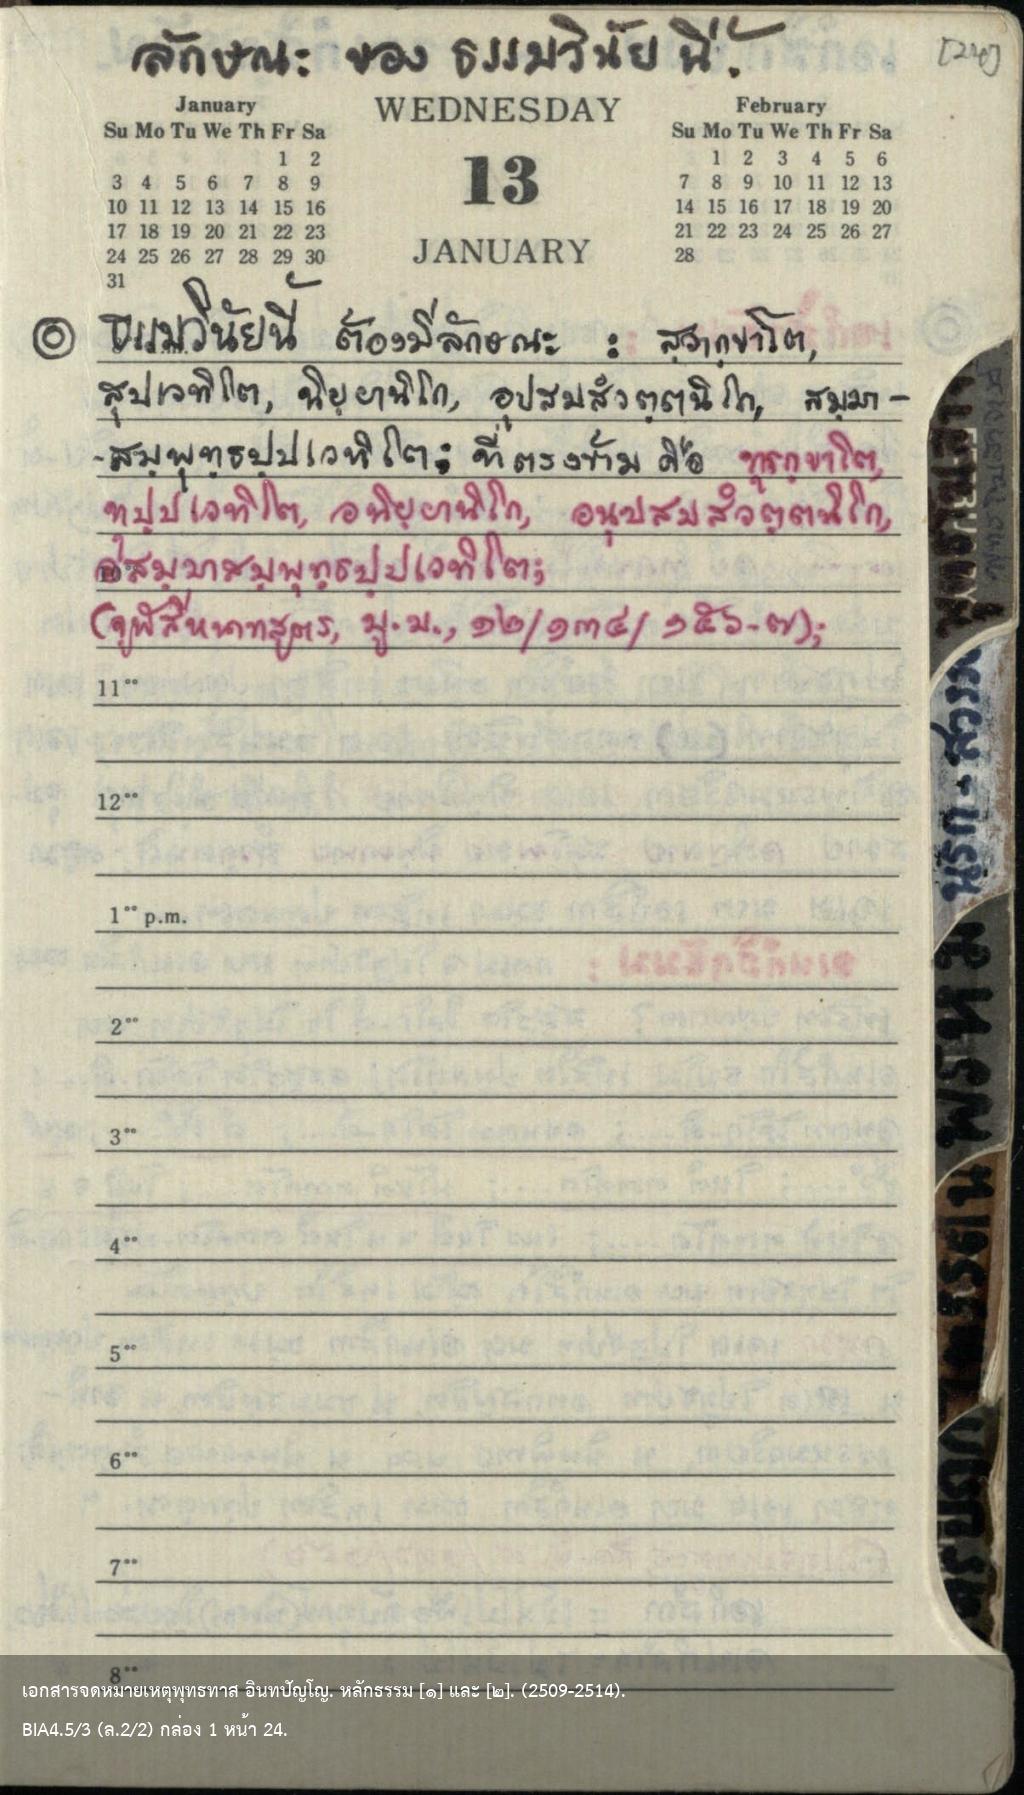 ลักษณะ ของ ธรรมวินัยนี้.
[24]
January
Su Mo Tu We Th Fr Sa
1 2
3 4 5 6 7 8 9
10 11 12 13 14 15 16
17 18 19 20 21 22 23
24 25 26 27 28 29 30
31
WEDNESDAY
13
JANUARY
February
Su Mo Tu We Th Fr Sa
1 2 3 4 5 6
7 8 9 10 11 12 13
14 15 16 17 18 19 20
21 22 23 24 25 26 27
28
ธรรมวินัยนี้ ต้องมีลักษณะ : สฺวากฺขาโต,
สุปเวทิโต, นิยฺยานิโก, อุปสมสํวตฺตนิโก, สมฺมา-
-สมฺพุทฺธปฺปเวทิโต; ที่ตรงข้าม คือ ทุรกฺขาโต,
ทุปฺปเวทิโต, อนิยฺยานิโก, อนุปสมสํวตฺตนิโก,
อสมฺมาสมฺพุทฺธปฺปเวทิโต;
(จูฬสีหนาทสูตร, มู.ม., ๑๒/๑๓๔/๑๕๖-๗);
11°°
12°°
1°° p.m.
2°°
3°°
4°°
5°°
6°°
7°°
8°°
นรก-สวรรค์
เอกสารจดหมายเหตุพุทธทาส อินทปัญโญ. หลักธรรม [๑] และ [๒]. (2509-2514).
BIA4.5/3 (ล.2/2) กล่อง 1 หน้า 24.